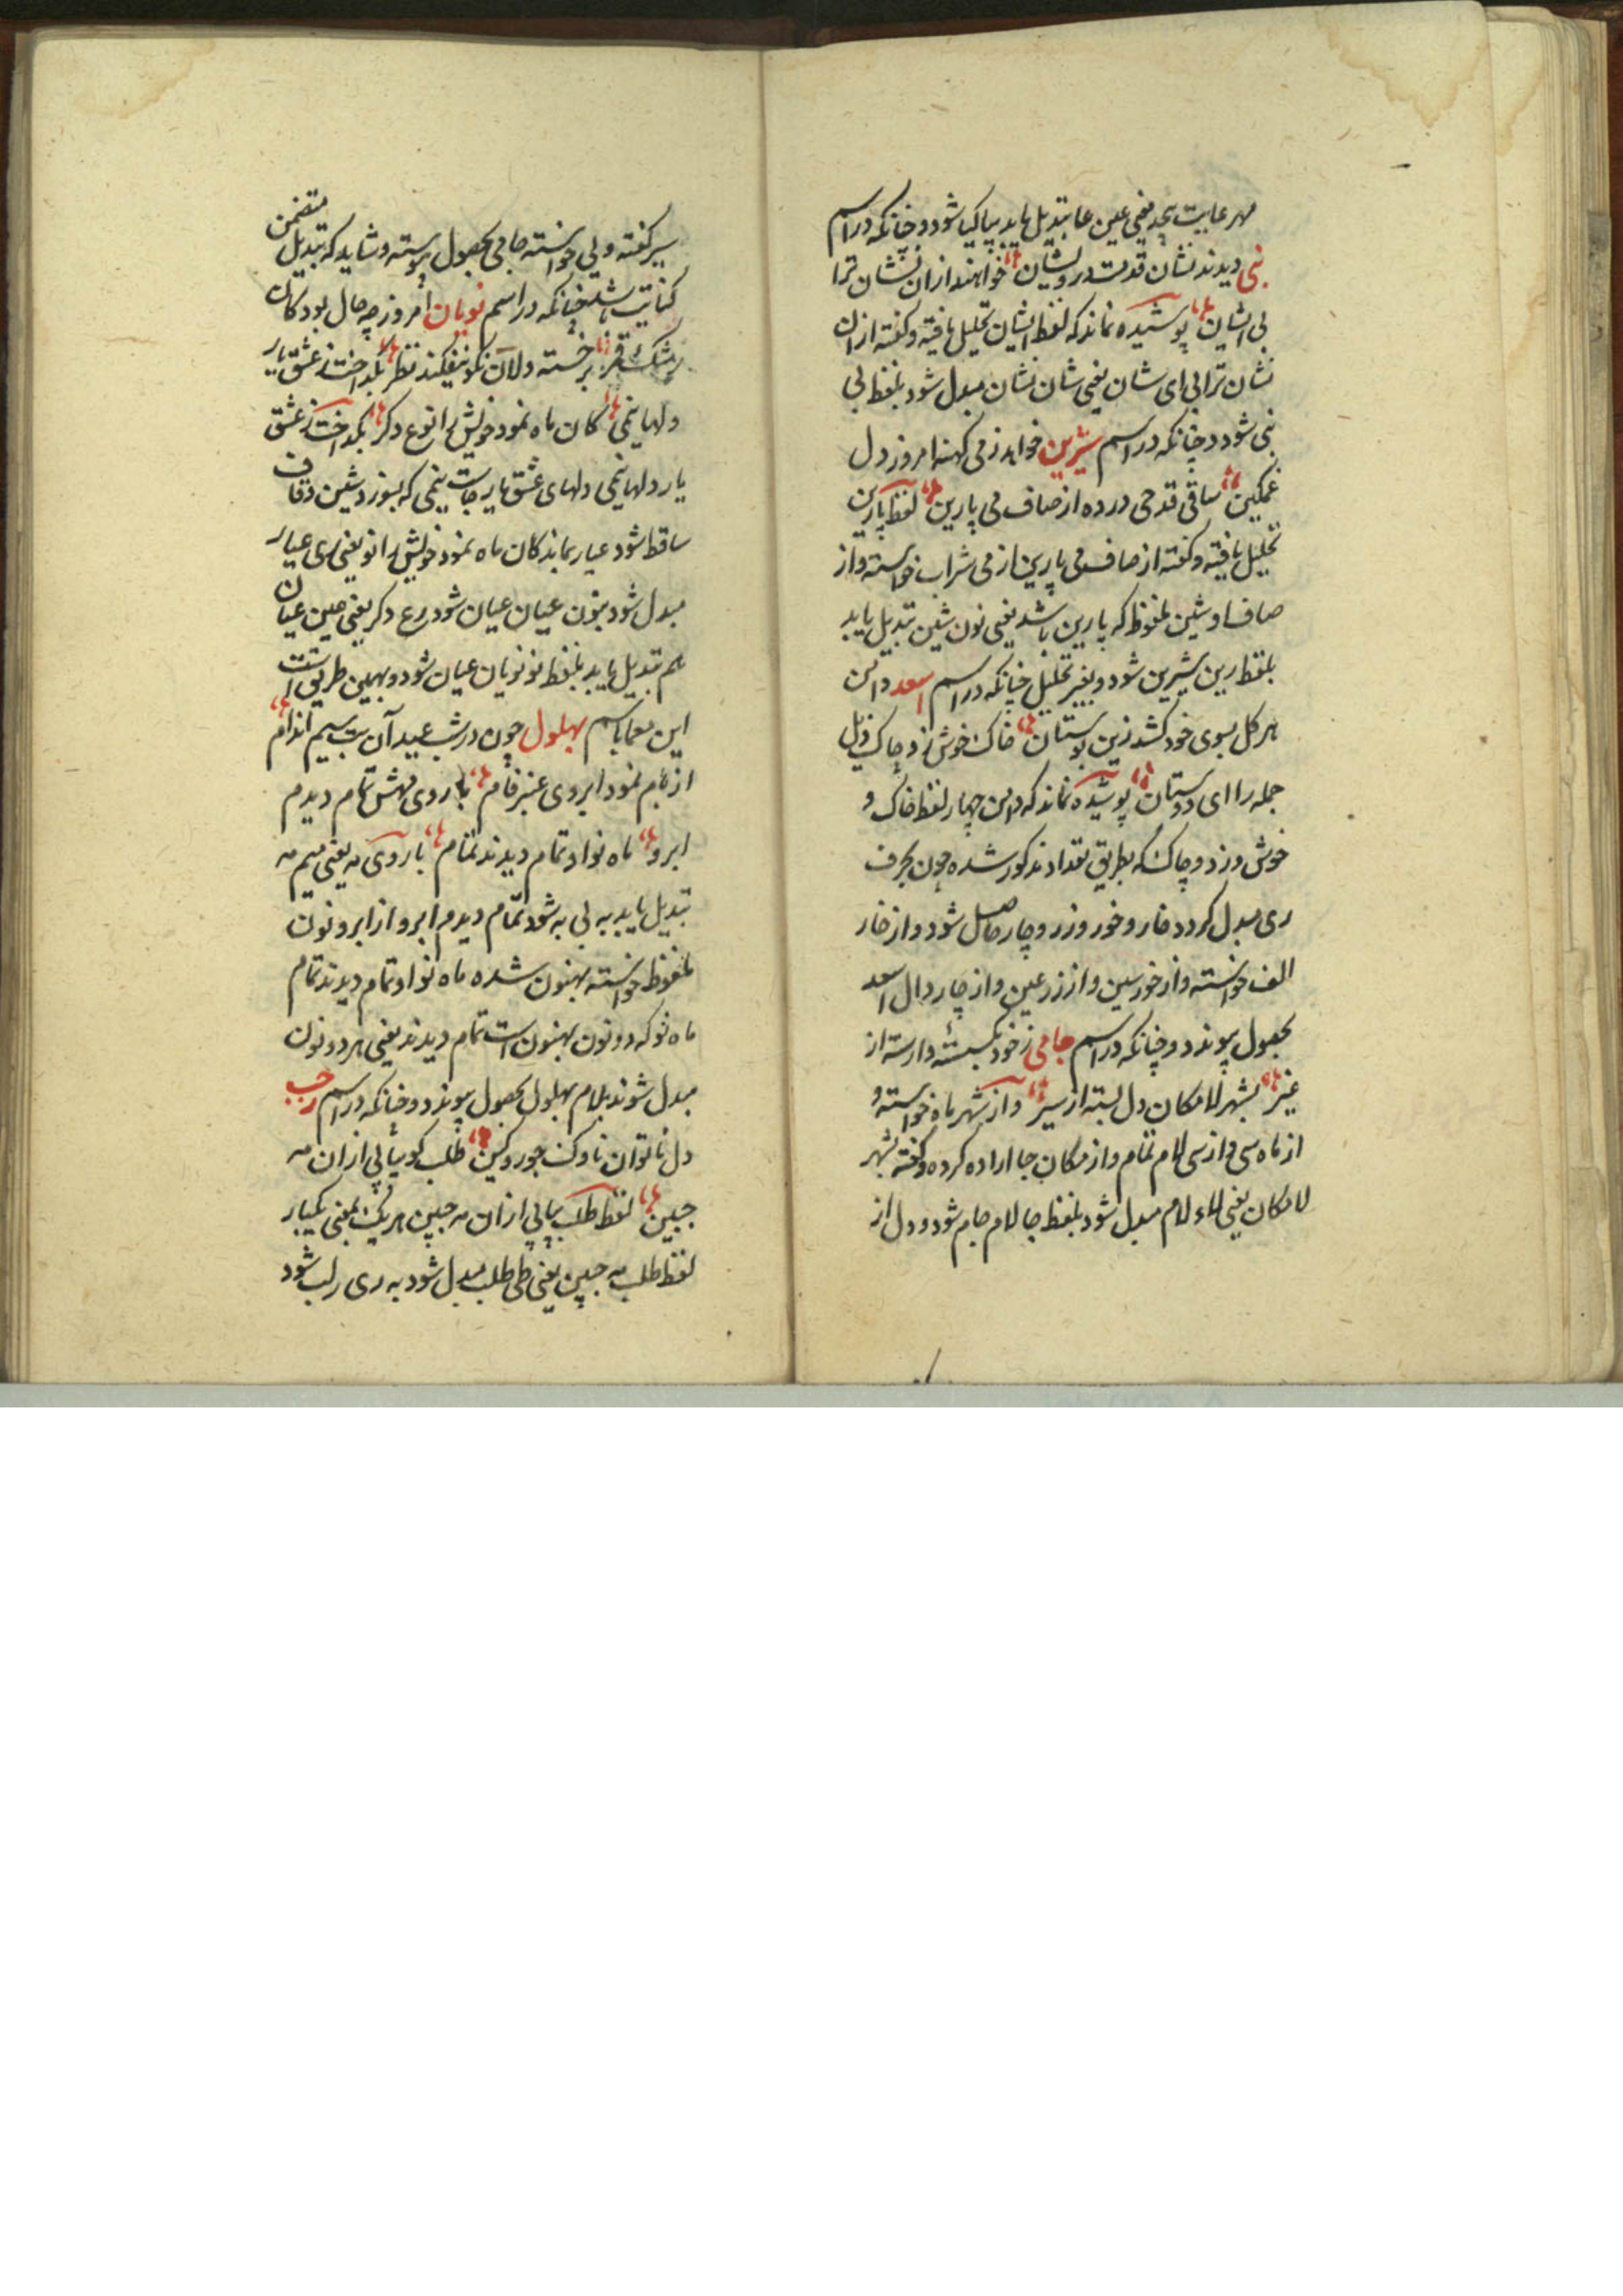 مهر عابیت بچه یعنی عین عا بتبدیل یابد بپا کیا شود و چنانکه در اسم
نبی دیدند نشان قدمت درویشان خواهند ازان نشان ترا
بی ایشان پوشیده نماند که لفظ ایشان تحلیل یافته و گفته ازان
نشان ترا بی ای شان یعنی شان نشان مبدل شود بلفظ بی
نبی شود و چنانکه در اسم شیرین خواهد ز می کهنه امروز دل
غمگین ساقی قدحی درده از صاف می پارین لفظ پارین
تحلیل یافته و گفته از صاف می پارین از می شراب خواسته و از
صاف او شین ملفوظ که پا رین باشد یعنی نون شین تبدیل یابد
بلفظ رین شیرین شود و بغیر تحلیل چنانکه در اسم اسعد دامن
هر گل بسوی خود کشد زین بوستان خاک خوش زد چاک ذیل
جمله را ای دوستان پوشیده نماند که دامن چهار لفظ خاک و
خوش و زد و چاک که بطریق تعداد مذکور شده چون بحرف
ری مبدل گردد خار و خور و زر و چار حاصل شود و از خار
الف خواسته و از خور سین و از زر عین و از چار دال اسعد
بحصول پیوندد و چنانکه در اسم جامی ز خود بگسسته وارسته از
غیر بشهر لامکان دل بسته از سیر و از شهر ماه خواسته و
از ماه سی و از سی لام تمام و از مکان جا اراده کرده و گفته بشهر
لامکان یعنی لاء لام مبدل شود بلفظ جا لام جام شود و دل از
سیر گفته و یی خواسته جامی بحصول پیوسته و شاید که تبدیل متضمن
کنایت باشد چنانکه در اسم نویان امروز چه حال بود کان
رشک قمر بر خسته دلان نو نیفکند نظر بگداخت ز عشق یار
دلها نیمی کان ماه نمود خویش را نوع دگر بگداخت ز عشق
یار دلها نیمی دلهای عشق یار جاست نیمی که بسوزد شین و قاف
ساقط شود عیار بماند کان ماه نمود خویش را نو یعنی ری عیار
مبدل شود بنون عیان عیان شود رع دگر یعنی عین عیان
هم تبدیل یابد بلفظ نو نویان عیان شود و بهمین طریق است
این معما باسم بهلول چون در شب عید آن بت سیم اندام
از بام نمود ابروی عنبر فام با روی مهش تمام دیدم
ابرو ماه نو او تمام دیدند تمام با روی مه یعنی میم مه
تبدیل یابد به بی به شود تمام دیدم ابرو از ابرو نون
ملفوظ خواسته بهنون شده ماه نو او تمام دیدند تمام
ماه نو که دو نون بهنون است تمام دیدند یعنی هر دو نون
مبدل شوند بلام بهلول بحصول پیوندد و چنانکه در اسم رجب
دل ناتوان ناوک جور و کین طلب گو بیابی ازان مه
جبین لفظ طلب بیابی ازان مه جبین هر یک بمعنی یکبار
لفظ طلب مه جبین یعنی طی طلب مبدل شود به ری رلب شود